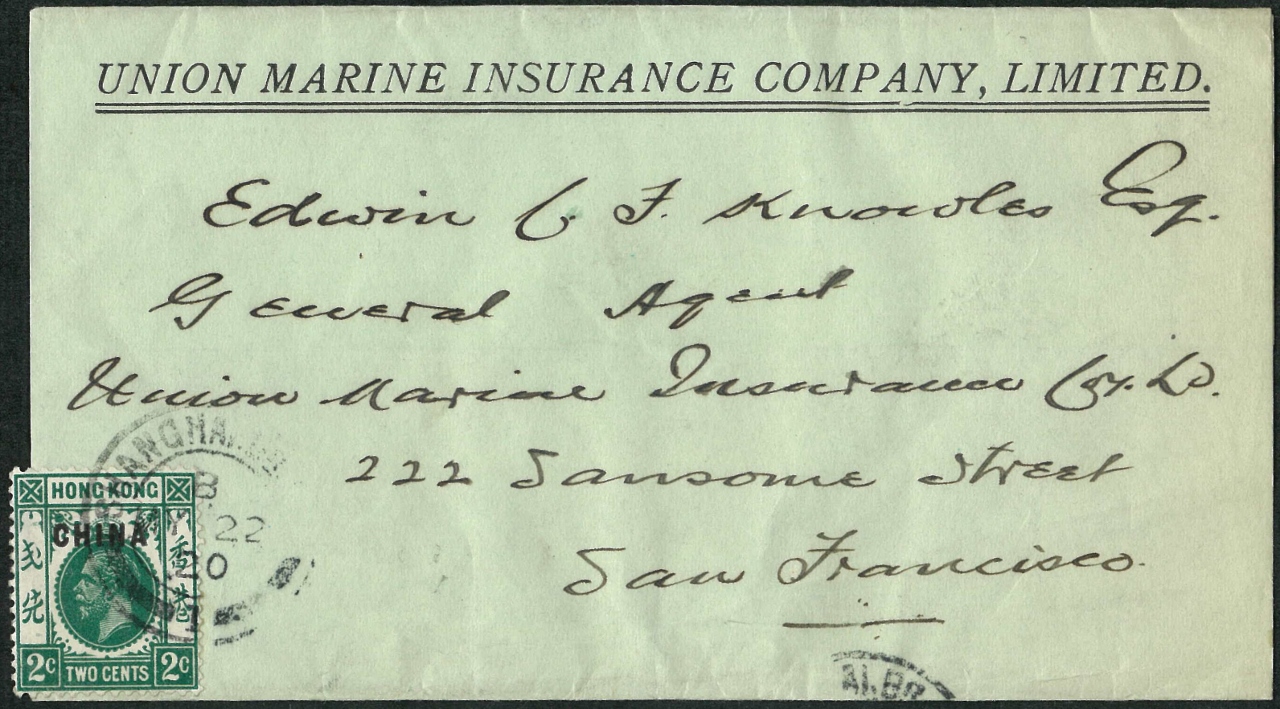 UNION MARINE INSURANCE COMPANY, LIMITED.
Edwin C. F. Knowles Esq.
General Agent
Union Marine Insurance Coy. Ld.
222 Sansome Street
San Francisco
HONG KONG
CHINA
香港
先
2C TWO CENTS 2C
SHANGHAI.BR
B
22
20
AI.BR